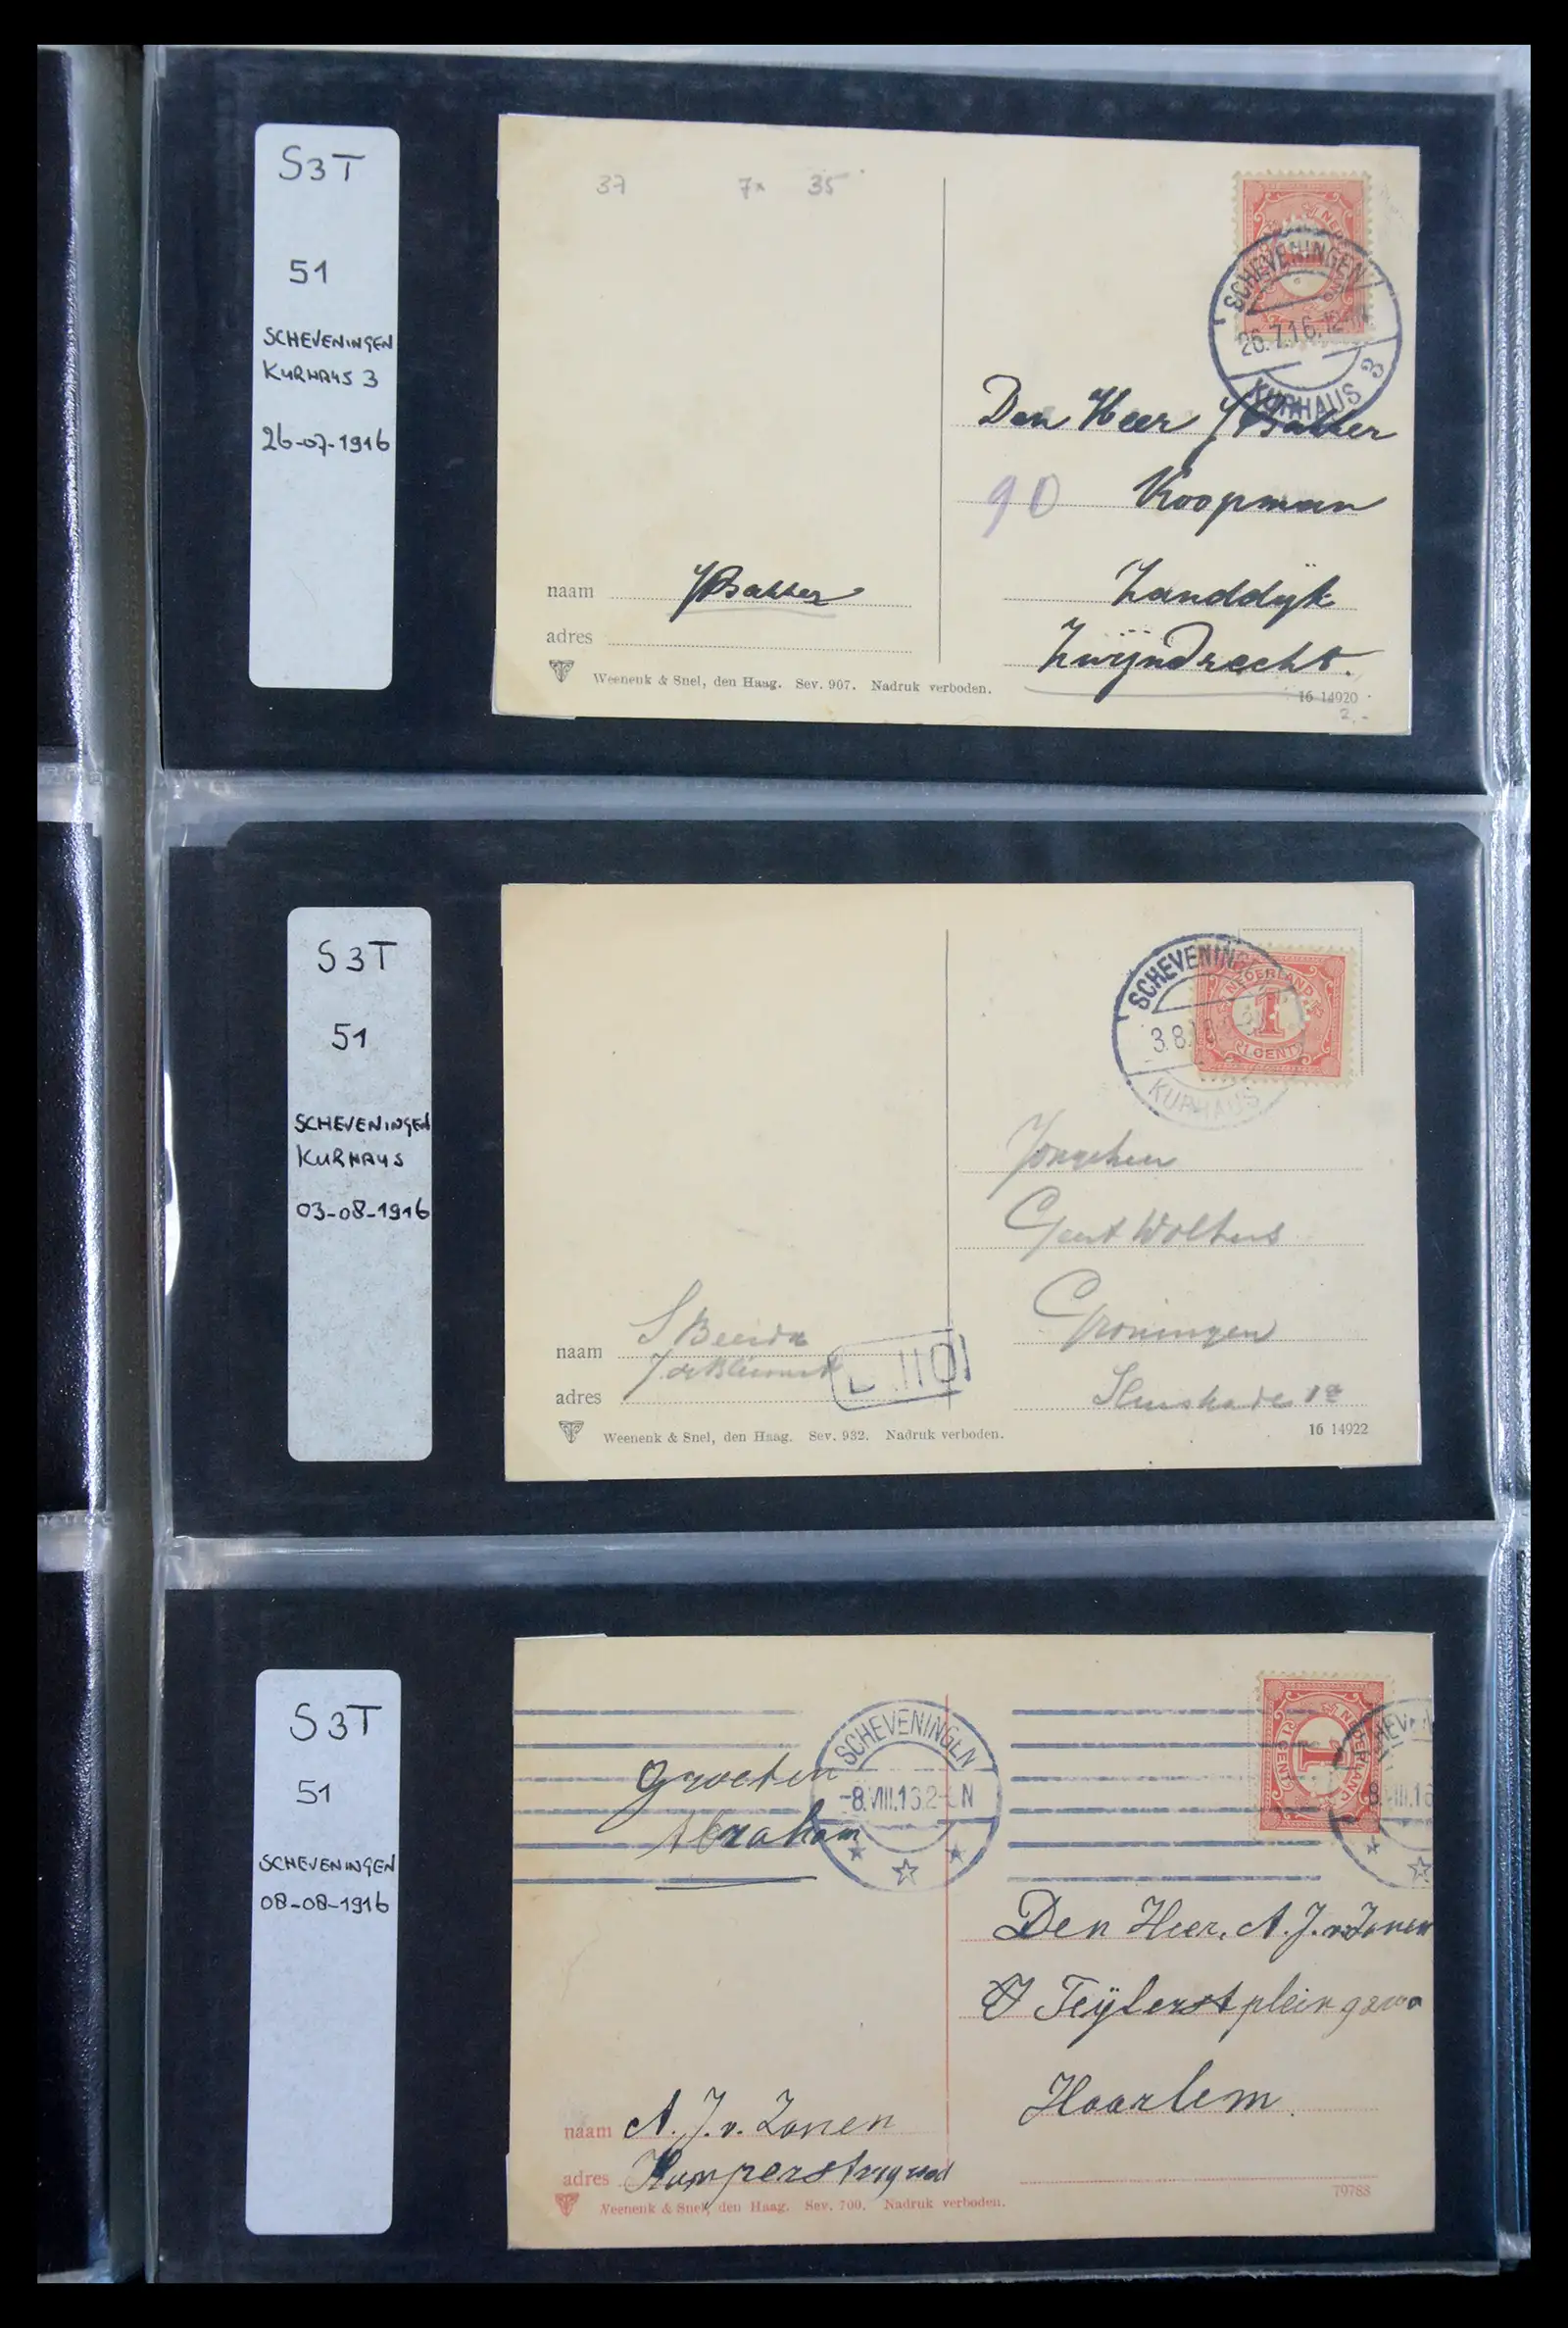 S3T
51
SCHEVENINGEN
KURHAUS 3
26-07-1916
37 7x 35
NEDERLAND
SCHEVENINGEN
26.7.16.12-
KURHAUS 3
Den Heer J Bakker
90 Koopman
Landdijk
Zwijndrecht.
naam J Bakker
adres
Weenenk & Snel, den Haag. Sev. 907. Nadruk verboden.
16 14920
2.-
S3T
51
SCHEVENINGEN
KURHAUS
03-08-1916
SCHEVENIN
3.8.
KURHAUS
NEDERLAND
1
1 CENT
Jongeheer
Geert Wolters
Groningen
1a
naam
adres
110
Weenenk & Snel, den Haag. Sev. 932. Nadruk verboden.
16 14922
S3T
51
SCHEVENINGEN
08-08-1916
SCHEVENINGEN
-8.VIII.16.2- N
NEDERLAND
1
1 CENT
8.VIII.16
Groeten
Abraham
Den Heer. A. J. v. Zonen
Teÿlerstplein
Haarlem.
naam A. J. v. Zonen
adres
Weenenk & Snel, den Haag. Sev. 700. Nadruk verboden.
79788